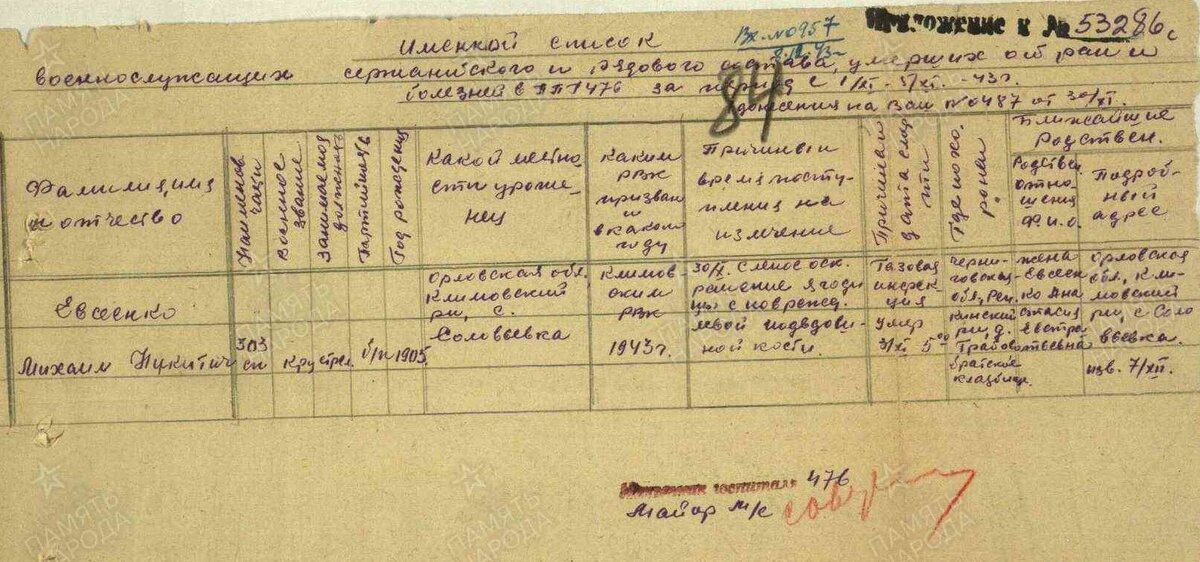 Приложение к № 53286с
Вх. № 0957
8.12.43г.
Именной список
военнослужащих сержанского и рядового состава, умерших от ран и
болезней в ППГ 476 за период с 1/XI - 5/XI - 43г.
84
донесения на Ваш № 0487 от 30/XI.
Фамилия, имя и отчество
Наименов. части
Военное звание
Занимаемая должность
Партийность
Год рождения
Какой местности уроженец
Каким РВК призван и в каком году
Причины и время поступления на излечение
Причина и дата смерти
Где похоронен
Ближайшие родствен.
Родствен. отношения Ф.И.О.
Подробный адрес
Евсеенко
Михаил Никитич
303 сп
Кр. стрел.
б/п
1905
Орловская обл.
Климовский
р-н, с.
Соловьевка
Климовским
РВК
1943г.
30/X. Слепое оск.
ранение ягодицы с поврежд.
левой подвздошной кости.
Газовая
инфекция
Умер
3/XI 5⁰⁰
Черниговская
обл., Репкинский
р-н, д.
братское
кладбище.
жена
Евсеенко
Анастасия
Орловская
обл., Климовский
р-н, с Соловьевка.
изв. 7/XII.
Начальник госпиталя 476
Майор м/с